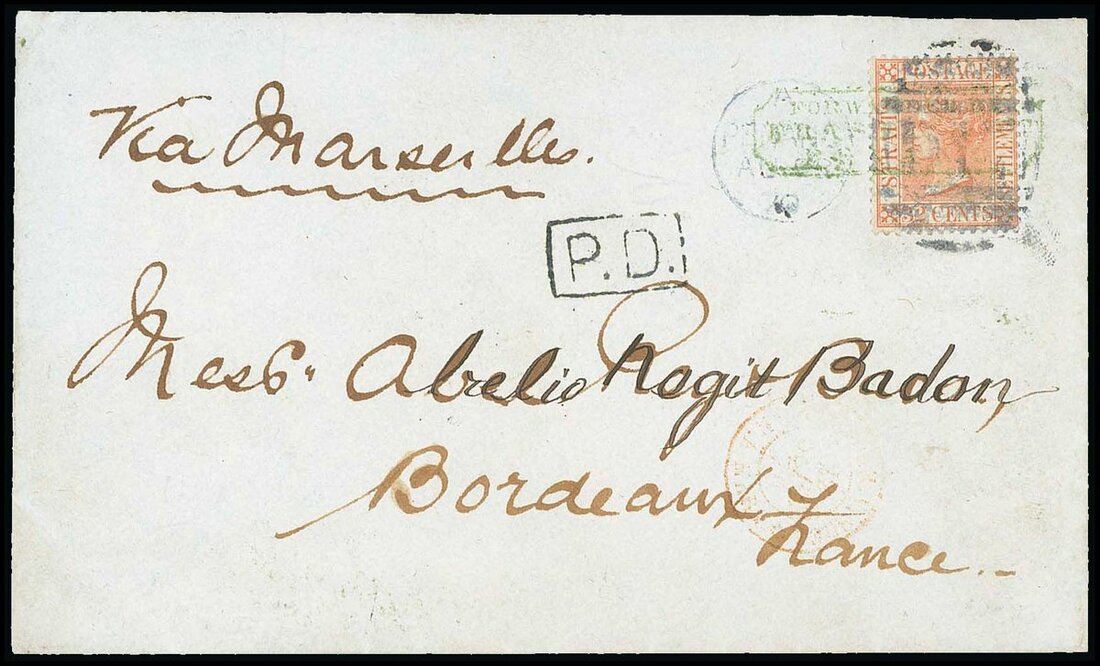 Via Marseilles.
POSTAGE
STRAITS
SETTLEMENTS
32 CENTS
P.D.
Mess^rs Abrelio Regit Badon
Bordeaux
France